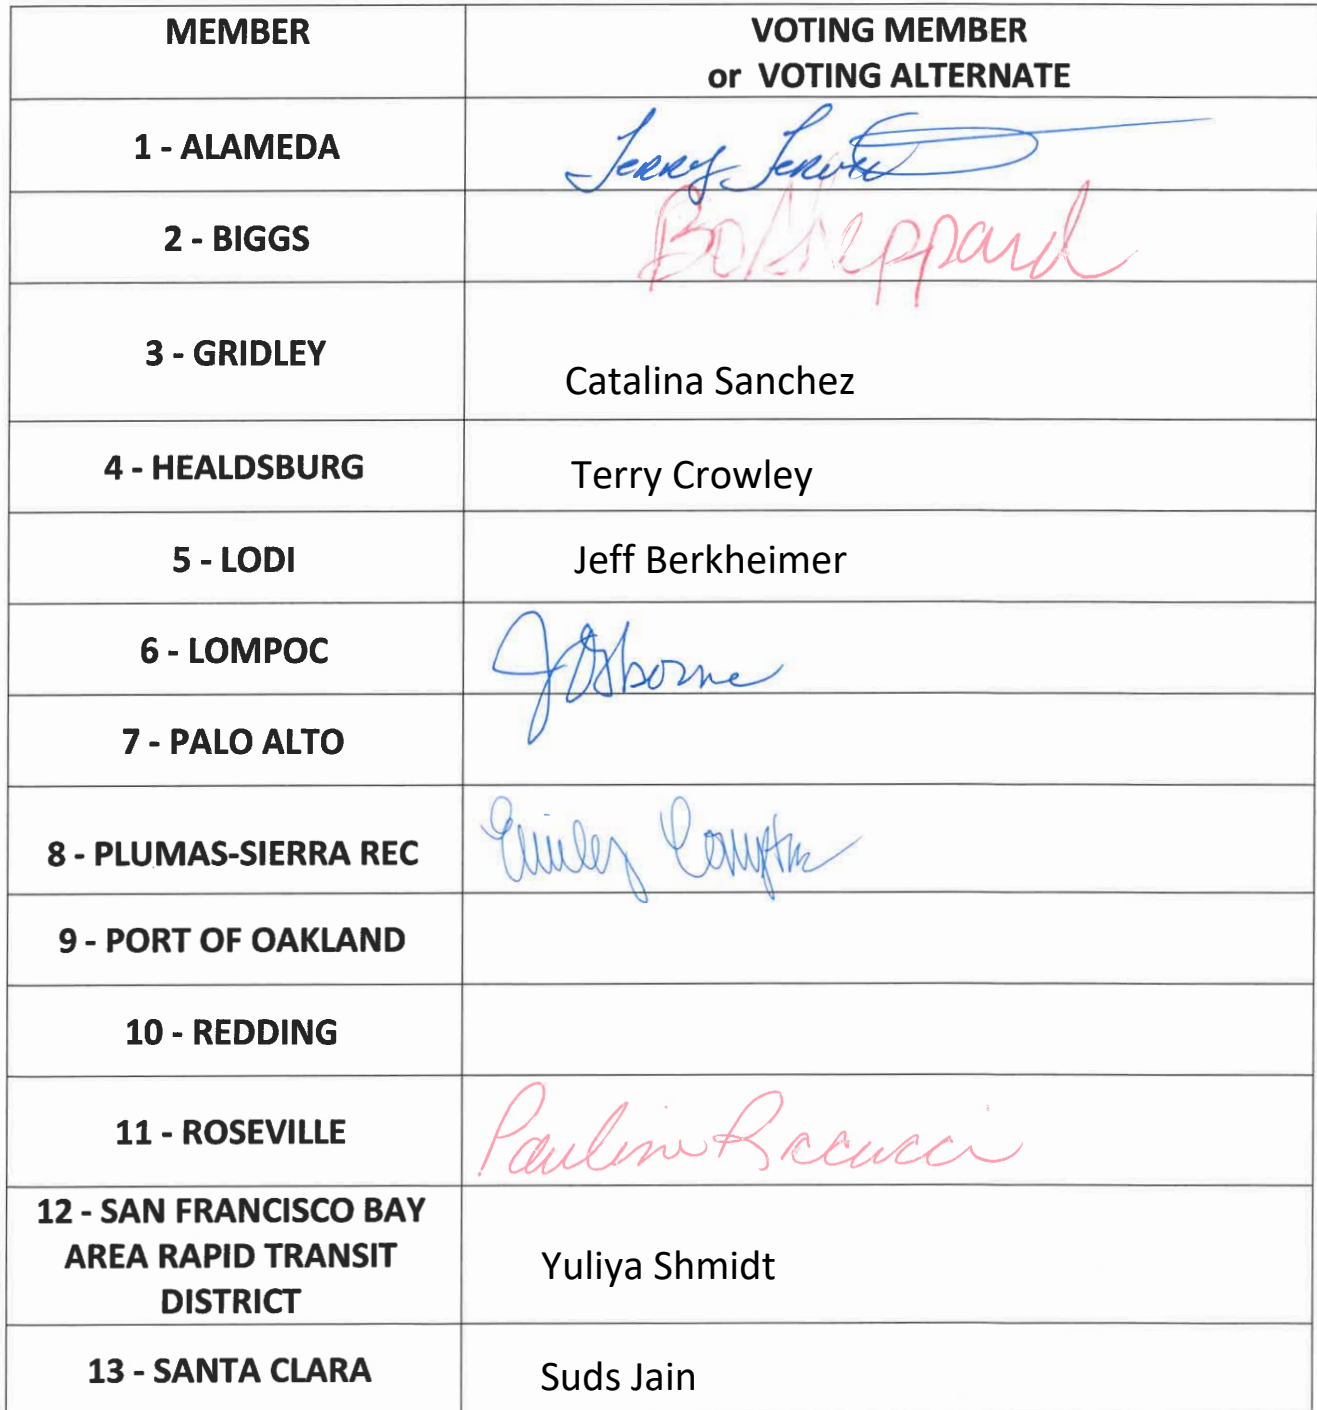 MEMBER
VOTING MEMBER
or VOTING ALTERNATE
1 - ALAMEDA
Jerry Serventi
2 - BIGGS
Bo Sheppard
3 - GRIDLEY
Catalina Sanchez
4 - HEALDSBURG
Terry Crowley
5 - LODI
Jeff Berkheimer
6 - LOMPOC
J Osborne
7 - PALO ALTO
8 - PLUMAS-SIERRA REC
Emily Compton
9 - PORT OF OAKLAND
10 - REDDING
11 - ROSEVILLE
Pauline Roccucci
12 - SAN FRANCISCO BAY
AREA RAPID TRANSIT
DISTRICT
Yuliya Shmidt
13 - SANTA CLARA
Suds Jain